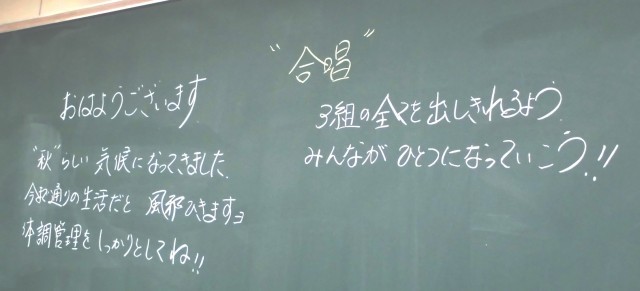 おはようございます
"秋"らしい気候になってきました。
今まで通りの生活だと 風邪ひきますョ
体調管理をしっかりとしてね!!
"合唱"
3組の全てを出しきれるよう
みんなが ひとつになっていこう!!